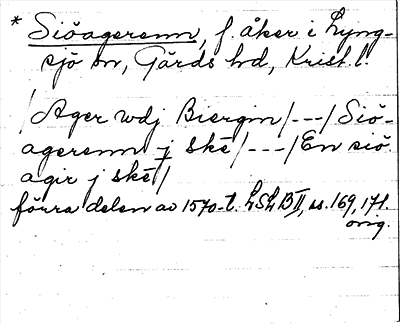 * Siöagerenn, f. åker i Lyng-
sjö sn, Gärds hd, Krist. l.
/Ager wdj Biergin/---/Siö-
agerenn j ske/---/En siö
agir j ske/
förra delen av 1570-t. LSLB II, ss. 169, 171.
orig.